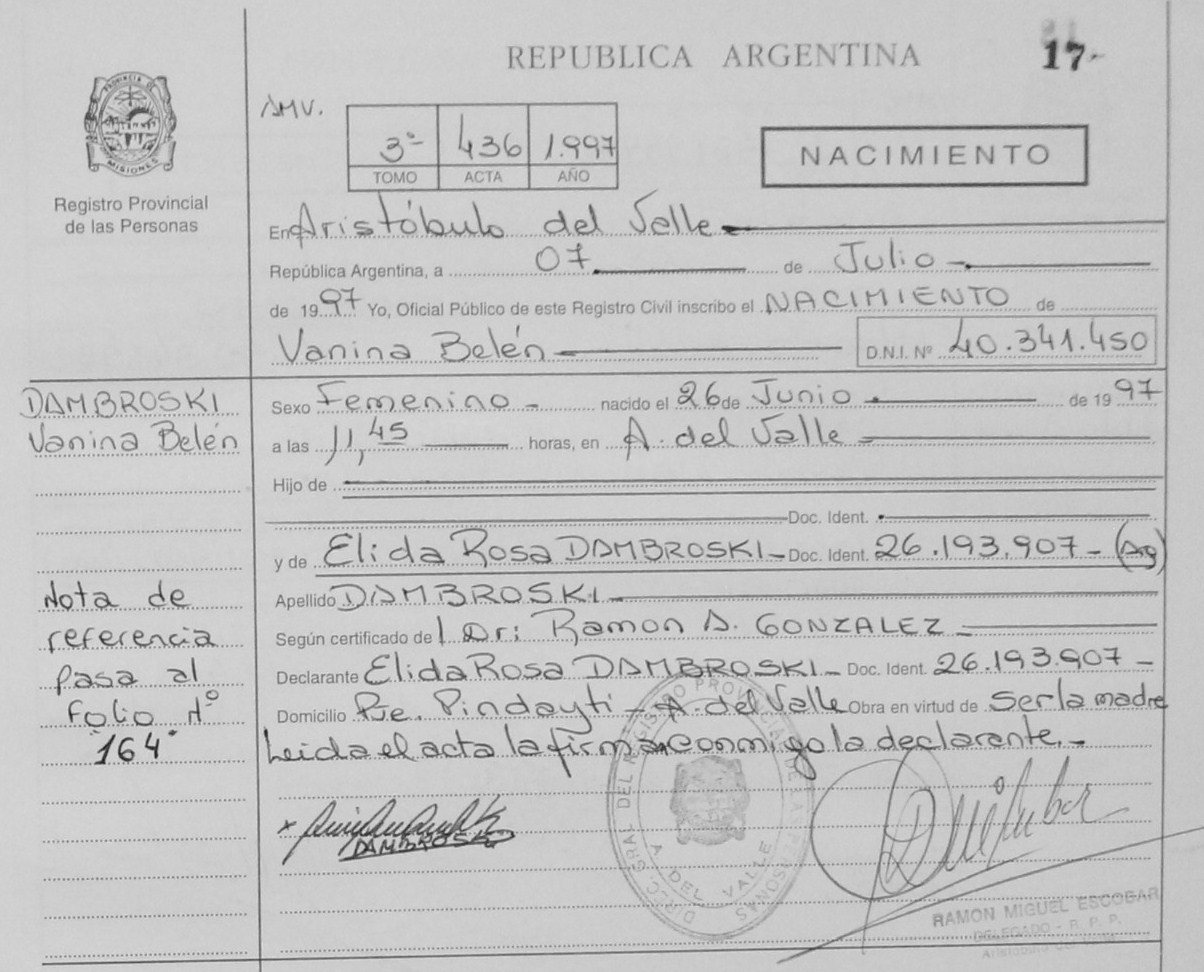 REPUBLICA ARGENTINA
17-
PROVINCIA DE MISIONES
Registro Provincial
de las Personas
AMV.
3º 436 1.997
TOMO ACTA AÑO
NACIMIENTO
En Aristóbulo del Valle
República Argentina, a 07 de Julio
de 1997 Yo, Oficial Público de este Registro Civil inscribo el NACIMIENTO de
Vanina Belén D.N.I. Nº 40.341.450
DAMBROSKI
Vanina Belén
Sexo Femenino nacido el 26 de Junio de 1997
a las 11,45 horas, en A. del Valle
Hijo de
Doc. Ident.
y de Elida Rosa DAMBROSKI Doc. Ident. 26.193.907 - (Ag)
Nota de
referencia
pasa al
folio Nº
"164"
Apellido DAMBROSKI
Según certificado del Dr: Ramon A. GONZALEZ
Declarante Elida Rosa DAMBROSKI Doc. Ident. 26.193.907 -
Domicilio Pje. Pindayti - A. del Valle Obra en virtud de Ser la madre
Leida el acta la firma conmigo la declarante.-
DIREC. GRAL. DEL REGISTRO PROVINCIAL DE LAS PERSONAS
A. DEL VALLE
DAMBROSKI
RAMON MIGUEL ESCOBAR
DELEGADO - R. P. P.